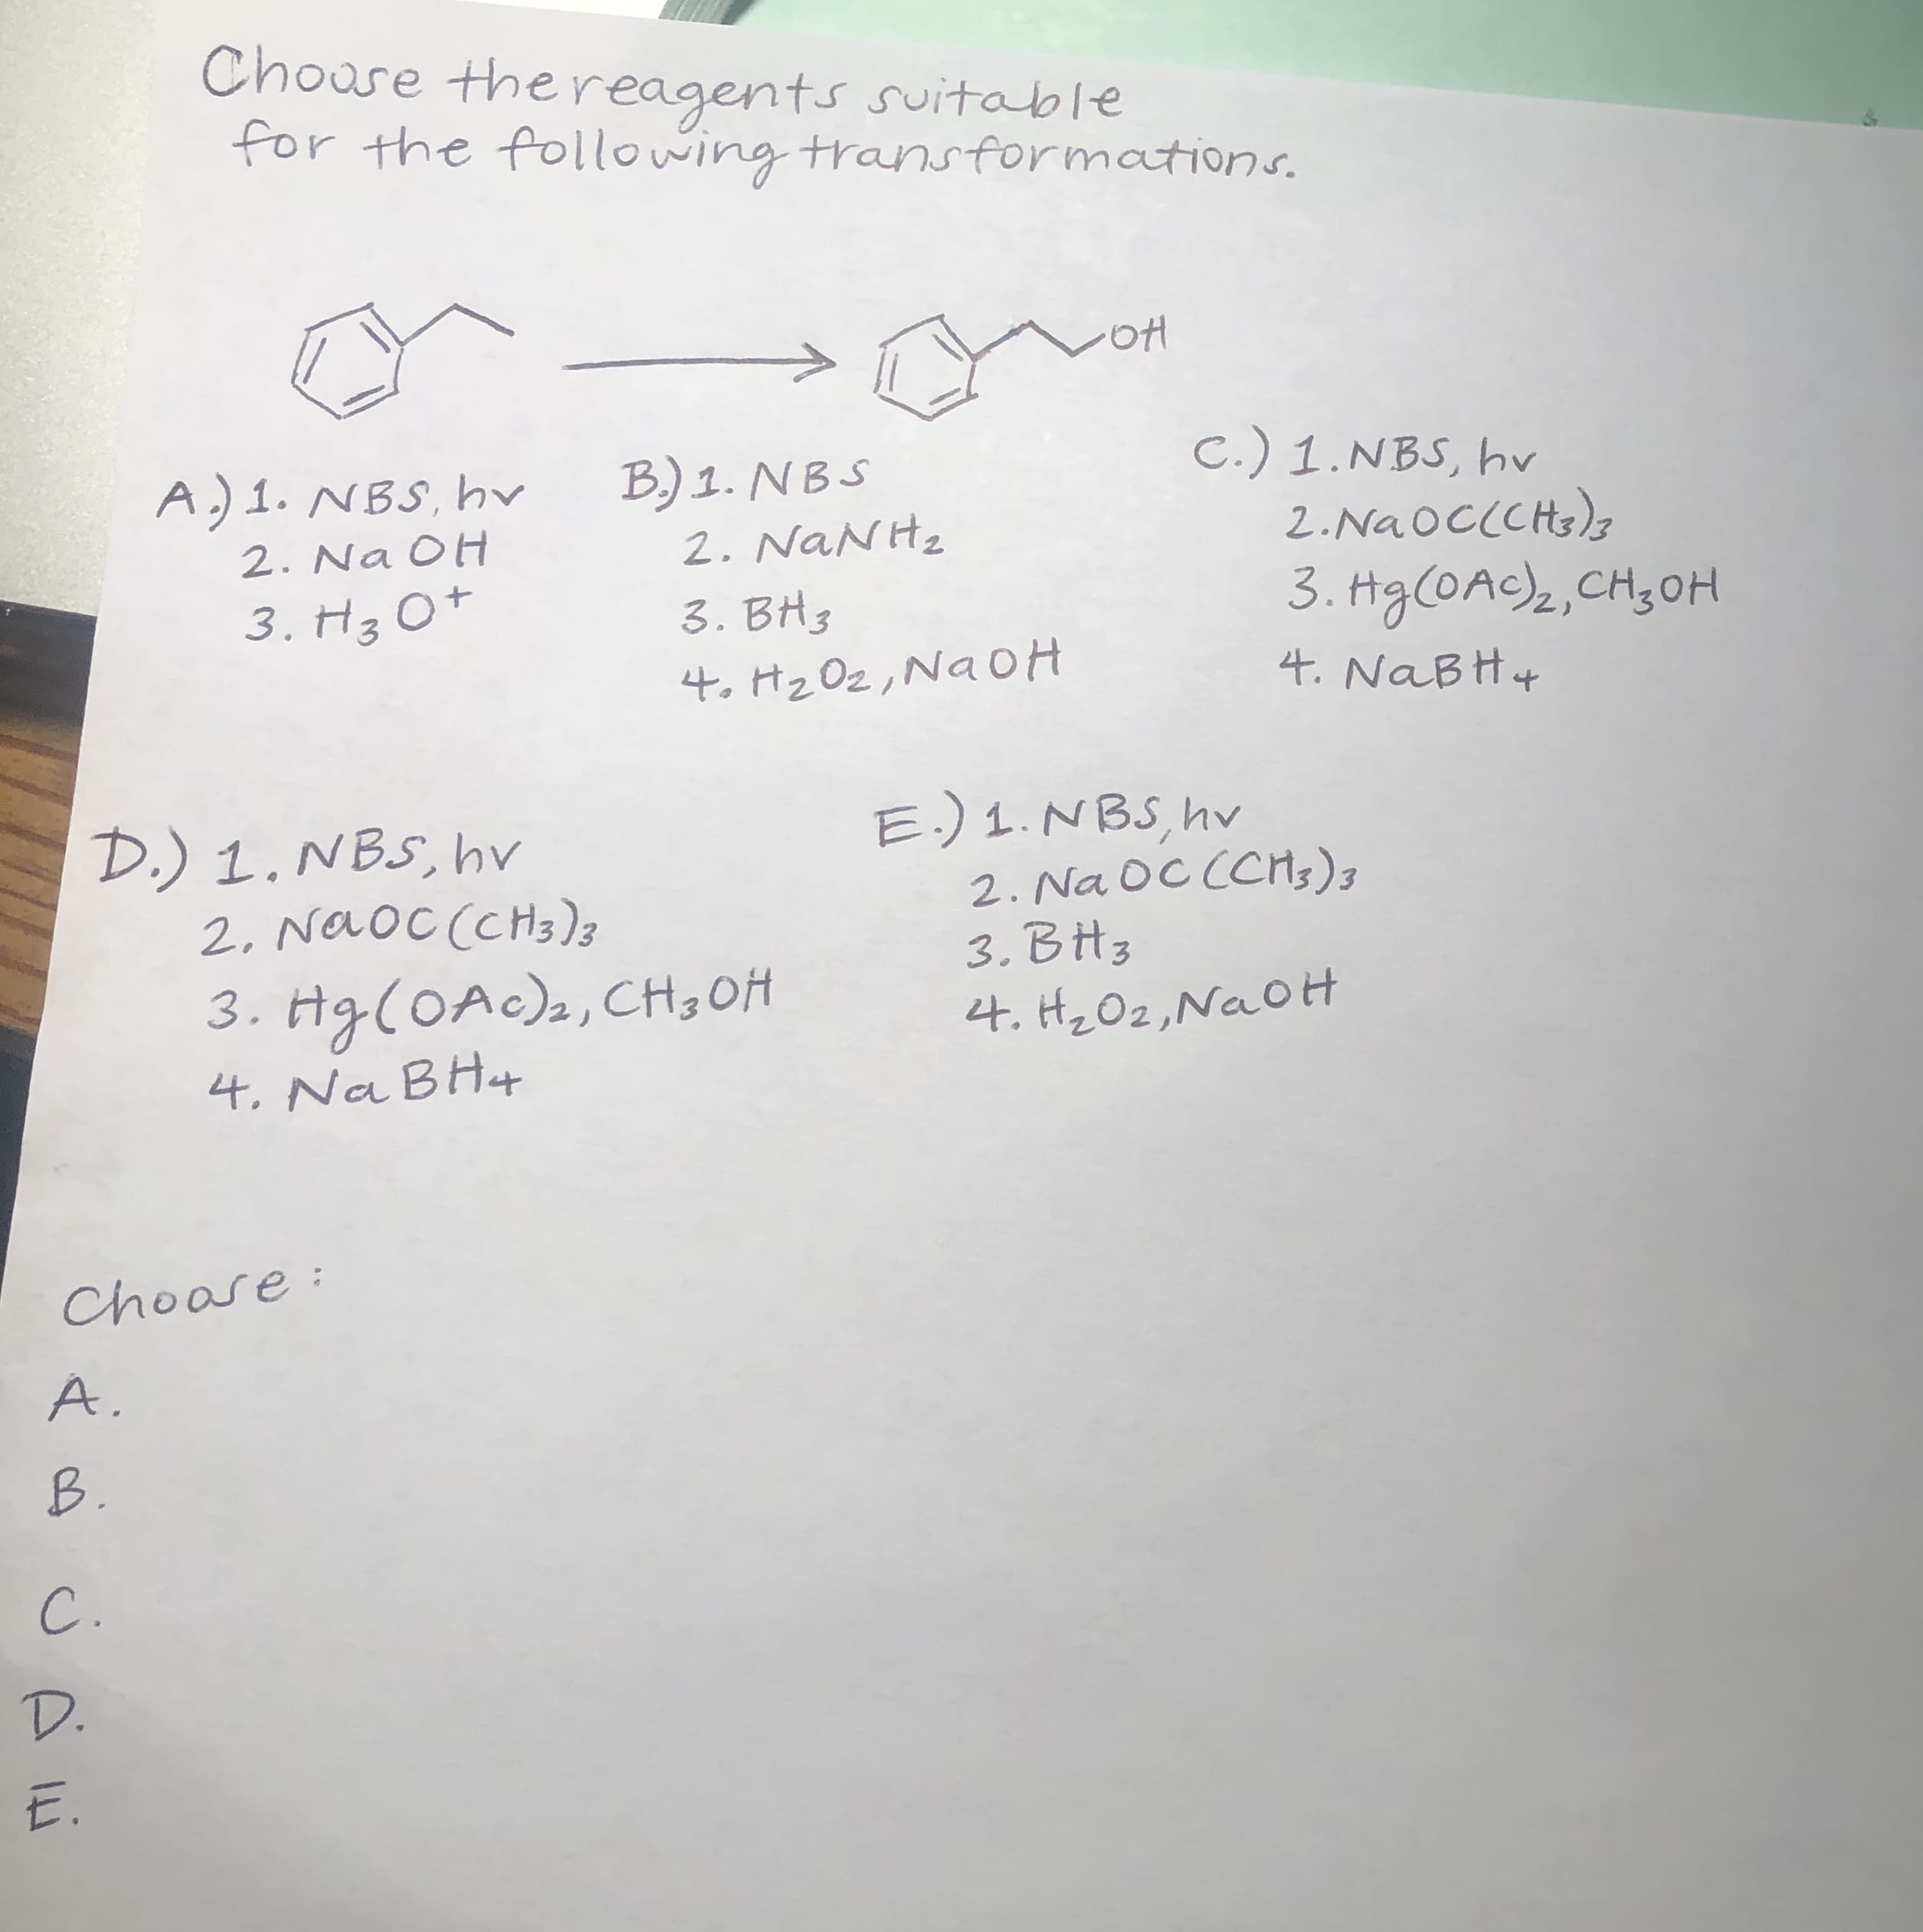 Choose the reagents suitable
for the following transformations.
OH
A.) 1. NBS, hv
2. NaOH
3. H3O+
B.) 1. NBS
2. NaNH2
3. BH3
4. H2O2, NaOH
C.) 1. NBS, hv
2. NaOC(CH3)3
3. Hg(OAc)2, CH3OH
4. NaBH4
D.) 1. NBS, hv
2. NaOC(CH3)3
3. Hg(OAc)2, CH3OH
4. NaBH4
E.) 1. NBS, hv
2. NaOC(CH3)3
3. BH3
4. H2O2, NaOH
Choose:
A.
B.
C.
D.
E.